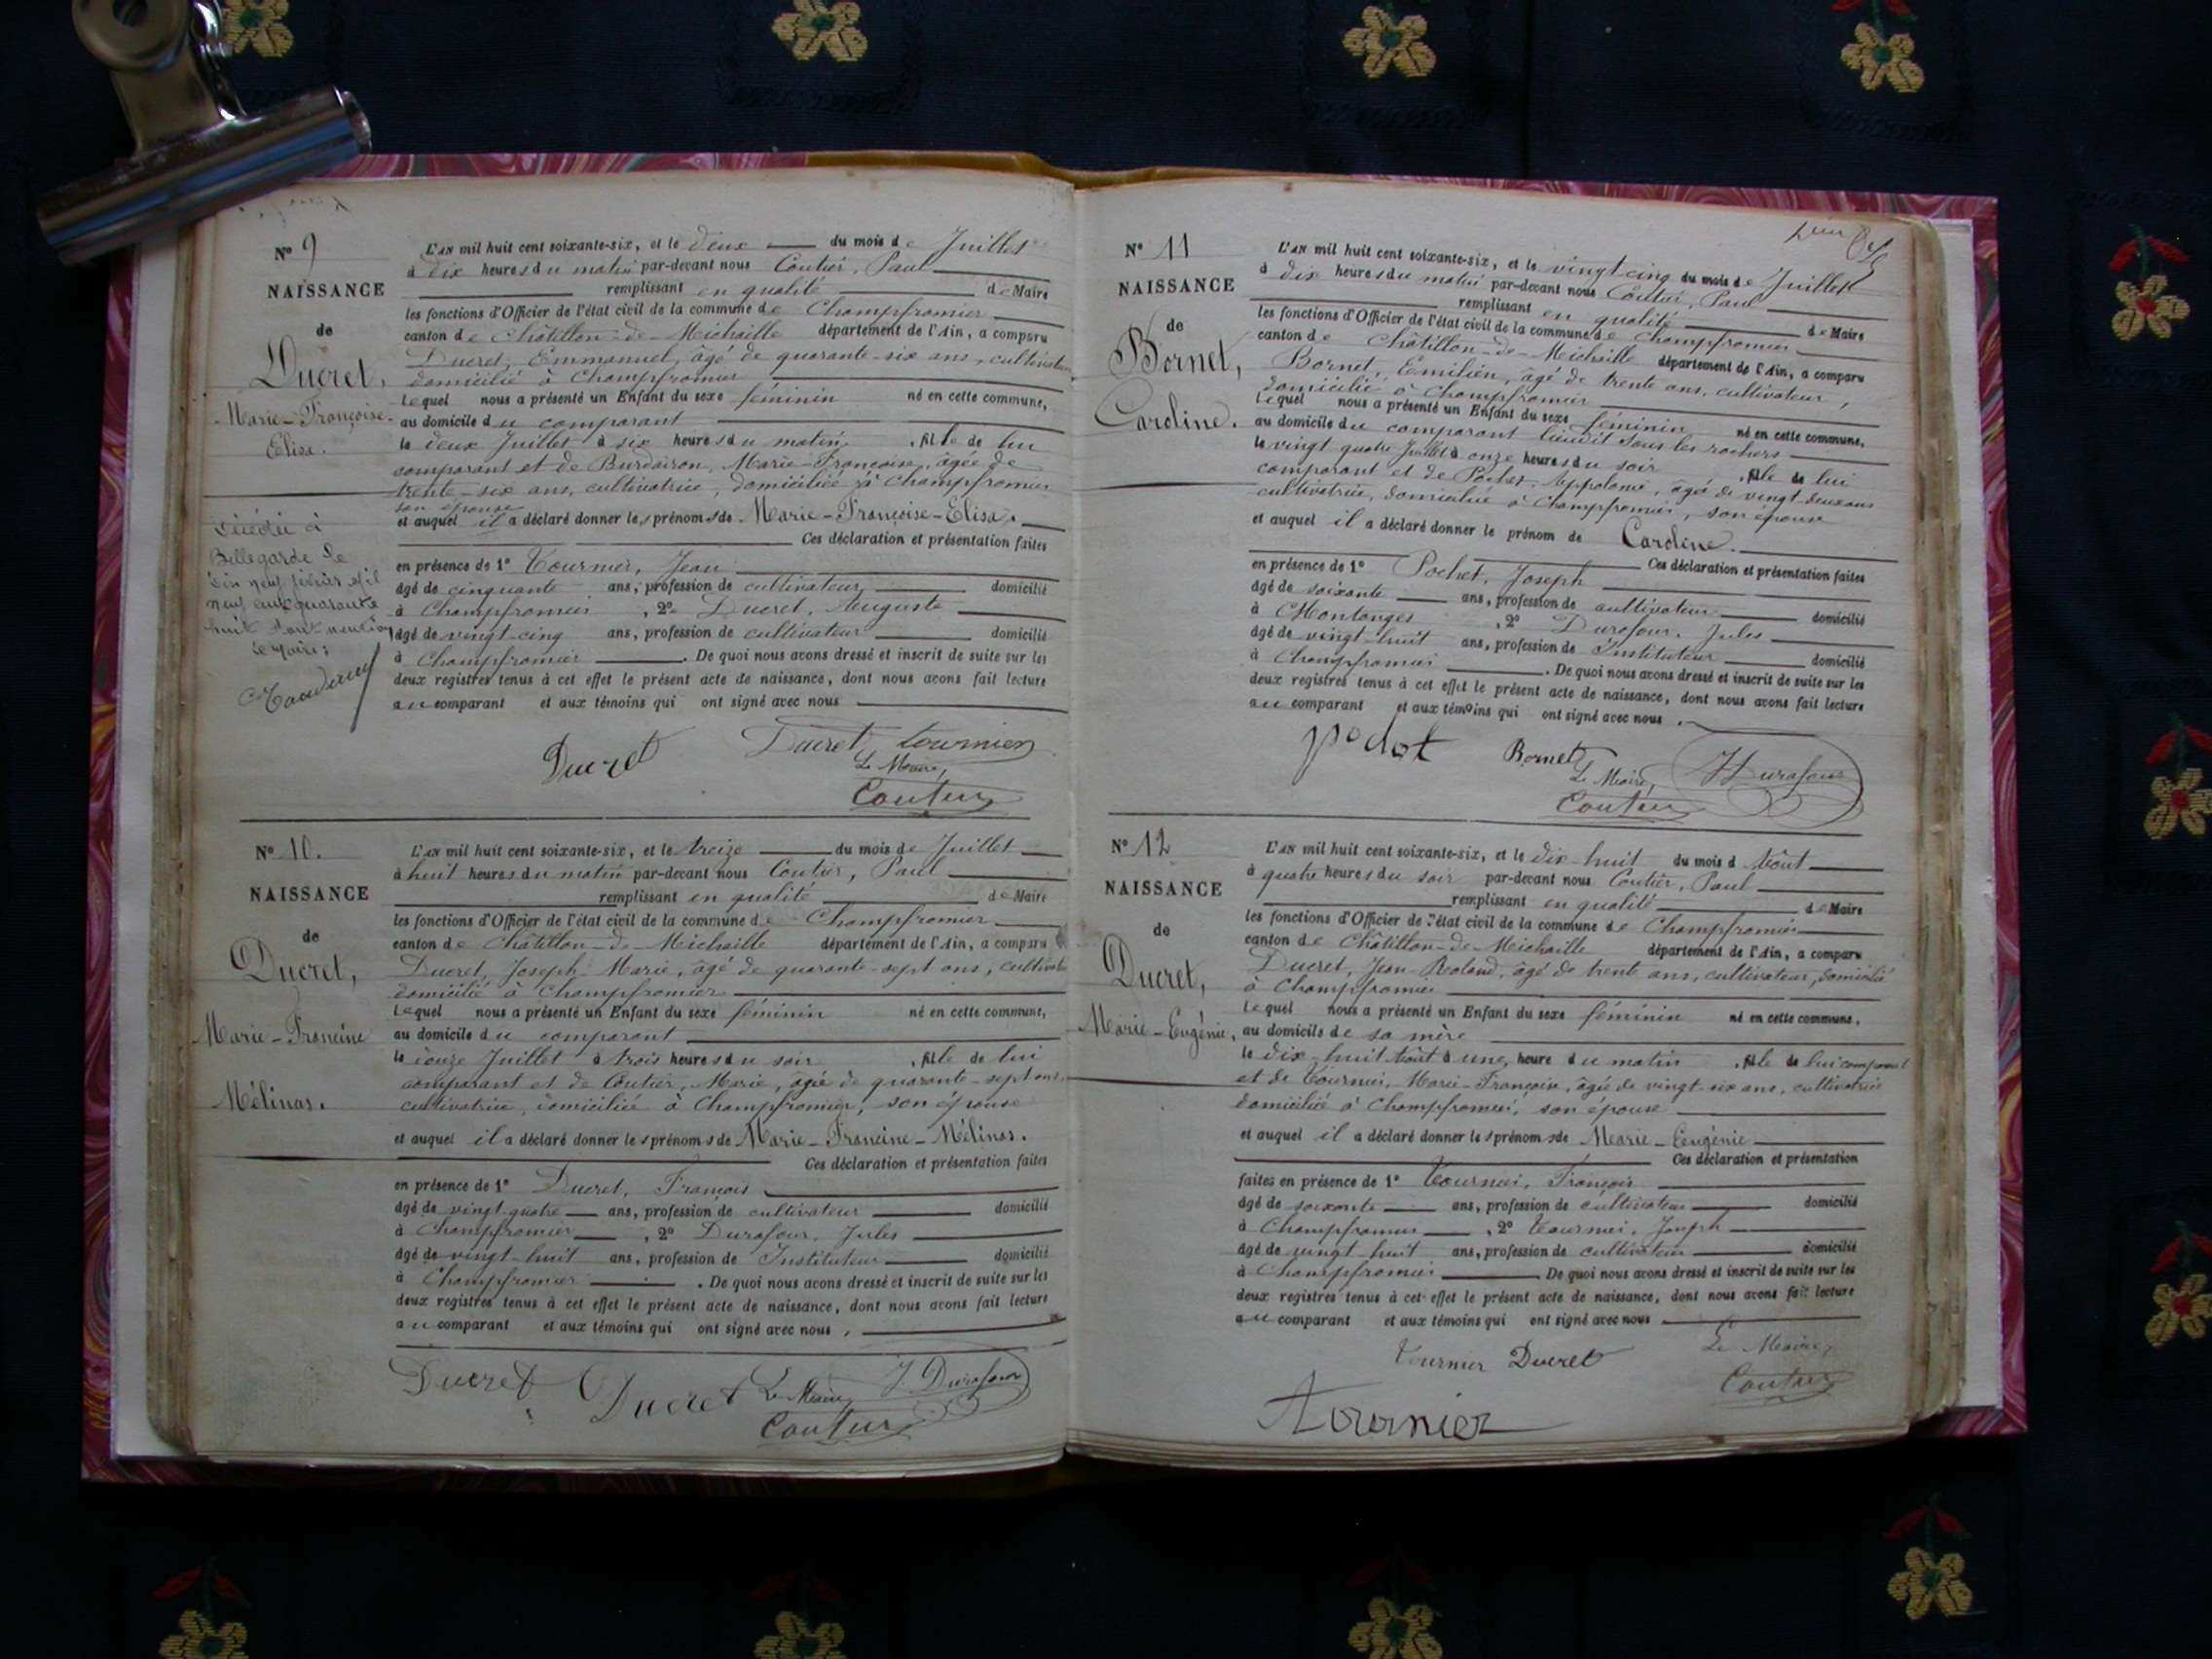 N° 9
NAISSANCE
de
Ducret,
Marie-Françoise-
Elisa.
Décédée à
Bellegarde le
dix neuf février mil
neuf cent quarante
huit dont mention
Le Maire:
L'an mil huit cent soixante-six, et le deux du mois de Juillet
à dix heures du matin par-devant nous Coutier, Paul
remplissant en qualité de Maire
les fonctions d'Officier de l'état civil de la commune de Champfromier
canton de Châtillon-de-Michaille département de l'Ain, a comparu
Ducret, Emmanuel, âgé de quarante-six ans, cultivateur
domicilié à Champfromier
Lequel nous a présenté un Enfant du sexe féminin né en cette commune,
au domicile du comparant
le deux Juillet à six heures du matin, fille de lui
comparant et de Burdairon, Marie-Françoise, âgée de
trente-six ans, cultivatrice, domiciliée à Champfromier
son épouse
et auquel il a déclaré donner les prénoms de Marie-Françoise-Elisa.
Ces déclaration et présentation faites
en présence de 1° Tournier, Jean
âgé de cinquante ans, profession de cultivateur domicilié
à Champfromier, 2° Ducret, Auguste
âgé de vingt-cinq ans, profession de cultivateur domicilié
à Champfromier. De quoi nous avons dressé et inscrit de suite sur les
deux registres tenus à cet effet le présent acte de naissance, dont nous avons fait lecture
au comparant et aux témoins qui ont signé avec nous
Ducret Ducret tournier
Le Maire,
Coutier
N° 10.
NAISSANCE
de
Ducret,
Marie-Francine
Mélinas.
L'an mil huit cent soixante-six, et le treize du mois de Juillet
à huit heures du matin par-devant nous Coutier, Paul
remplissant en qualité de Maire
les fonctions d'Officier de l'état civil de la commune de Champfromier
canton de Châtillon-de-Michaille département de l'Ain, a comparu
Ducret, Joseph-Marie, âgé de quarante-sept ans, cultivat
domicilié à Champfromier
Lequel nous a présenté un Enfant du sexe féminin né en cette commune,
au domicile du comparant
le douze Juillet à trois heures du soir, fille de lui
comparant et de Coutier, Marie, âgée de quarante-sept ans,
cultivatrice, domiciliée à Champfromier, son épouse
et auquel il a déclaré donner les prénoms de Marie-Francine-Mélinas.
Ces déclaration et présentation faites
en présence de 1° Ducret, François
âgé de vingt-quatre ans, profession de cultivateur domicilié
à Champfromier, 2° Durafour, Jules
âgé de vingt-huit ans, profession de Instituteur domicilié
à Champfromier. De quoi nous avons dressé et inscrit de suite sur les
deux registres tenus à cet effet le présent acte de naissance, dont nous avons fait lecture
au comparant et aux témoins qui ont signé avec nous,
Ducret Ducret Le Maire, J. Durafour
Coutier
N° 11
NAISSANCE
de
Bornet,
Caroline.
L'an mil huit cent soixante-six, et le vingt cinq du mois de Juillet
à dix heures du matin par-devant nous Coutier, Paul
remplissant en qualité de Maire
les fonctions d'Officier de l'état civil de la commune de Champfromier
canton de Châtillon-de-Michaille département de l'Ain, a comparu
Bornet, Emilien, âgé de trente ans, cultivateur,
domicilié à Champfromier
Lequel nous a présenté un Enfant du sexe féminin né en cette commune,
au domicile du comparant lieudit Sous les rochers
le vingt quatre Juillet à onze heures du soir, fille de lui
comparant et de Pochet, Appolonie, âgée de vingt-deux ans
cultivatrice, domiciliée à Champfromier, son épouse
et auquel il a déclaré donner le prénom de Caroline.
Ces déclaration et présentation faites
en présence de 1° Pochet, Joseph
âgé de soixante ans, profession de cultivateur domicilié
à Montanges, 2° Durafour, Jules
âgé de vingt-huit ans, profession de Instituteur domicilié
à Champfromier. De quoi nous avons dressé et inscrit de suite sur les
deux registres tenus à cet effet le présent acte de naissance, dont nous avons fait lecture
au comparant et aux témoins qui ont signé avec nous.
Bornet JDurafour
Le Maire,
Coutier
N° 12
NAISSANCE
de
Ducret,
Marie-Eugénie,
L'an mil huit cent soixante-six, et le dix-huit du mois d'Aôut
à quatre heures du soir par-devant nous Coutier, Paul
remplissant en qualité de Maire
les fonctions d'Officier de l'état civil de la commune de Champfromier
canton de Châtillon-de-Michaille département de l'Ain, a comparu
Ducret, Jean-Roland, âgé de trente ans, cultivateur, domicilié
à Champfromier
Lequel nous a présenté un Enfant du sexe féminin né en cette commune,
au domicile de sa mère
le dix-huit Aôut à une heure du matin, fille de lui comparant
et de Tournier, Marie-Françoise, âgée de vingt-six ans, cultivatrice
domiciliée à Champfromier, son épouse
et auquel il a déclaré donner les prénoms de Marie-Eugénie
Ces déclaration et présentation
faites en présence de 1° Tournier, François
âgé de soixante ans, profession de cultivateur domicilié
à Champfromier, 2° Tournier, Joseph
âgé de vingt-huit ans, profession de cultivateur domicilié
à Champfromier De quoi nous avons dressé et inscrit de suite sur les
deux registres tenus à cet effet le présent acte de naissance, dont nous avons fait lecture
au comparant et aux témoins qui ont signé avec nous
Tournier Ducret Le Maire,
Coutier
Tournier